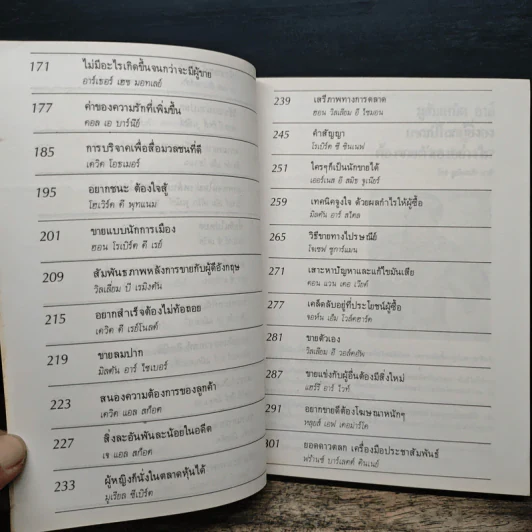 171 ไม่มีอะไรเกิดขึ้นจนกว่าจะมีผู้ขาย
อาร์เธอร์ เฮช มอทเลย์
177 ค่าของความรักที่เพิ่มขึ้น
คอล เอ บาร์นีย์
185 การบริจาคเพื่อสื่อมวลชนที่ดี
เดวิด โอยเมอร์
195 อยากชนะ ต้องใจสู้
โฮเวิร์ด ดี พุทแนม
201 ขายแบบนักการเมือง
ฮอน โรเบิร์ต ดี เรย์
209 สัมพันธภาพหลังการขายกับผู้ดีอังกฤษ
วิลเลี่ยม บี เรมิงตัน
215 อยากสำเร็จต้องไม่ท้อถอย
เดวิด ดี เรย์โนลด์
219 ขายลมปาก
มิลตัน อาร์ ไซเบอร์
223 สนองความต้องการของลูกค้า
เดวิด แอล สก๊อต
227 สิ่งละอันพันละน้อยในอดีต
เจ แอล สก๊อต
233 ผู้หญิงก็นั่งในตลาดหุ้นได้
มูเรียล ซีเบิร์ต
239 เสรีภาพทางการตลาด
ฮอน วิลเลียม อี ไซมอน
245 คำสัญญา
โรเบิร์ต ซี ซินเนฟ
251 ใครๆก็เป็นนักขายได้
เออร์เนส อี สมิธ จูเนียร์
259 เทคนิคจูงใจ ด้วยผลกำไรให้ผู้ซื้อ
มิลตัน อาร์ สโตล
265 วิธีขายทางไปรษณีย์
โจเซฟ ชูการ์แมน
271 เสาะหาปัญหาและแก้ไขมันเสีย
ดอน แวน เดอ เวียท์
277 เคล็ดลับอยู่ที่ประโยชน์ผู้ซื้อ
จอห์น เอ็ม โวล์คฮาร์ด
281 ขายตัวเอง
วิลเลียม ดี วอล์คอัพ
287 ขายแข่งกับผู้อื่นต้องมีสิ่งใหม่
แฮร์รี่ อาร์ ไวท์
291 อยากขายดีต้องโฆษณาหนักๆ
หลุยส์ เอฟ เดอมาร์โค
301 ยอดดาวตลก เครื่องมือประชาสัมพันธ์
ฟรานซ์ บาร์เลตต์ คินเนย์